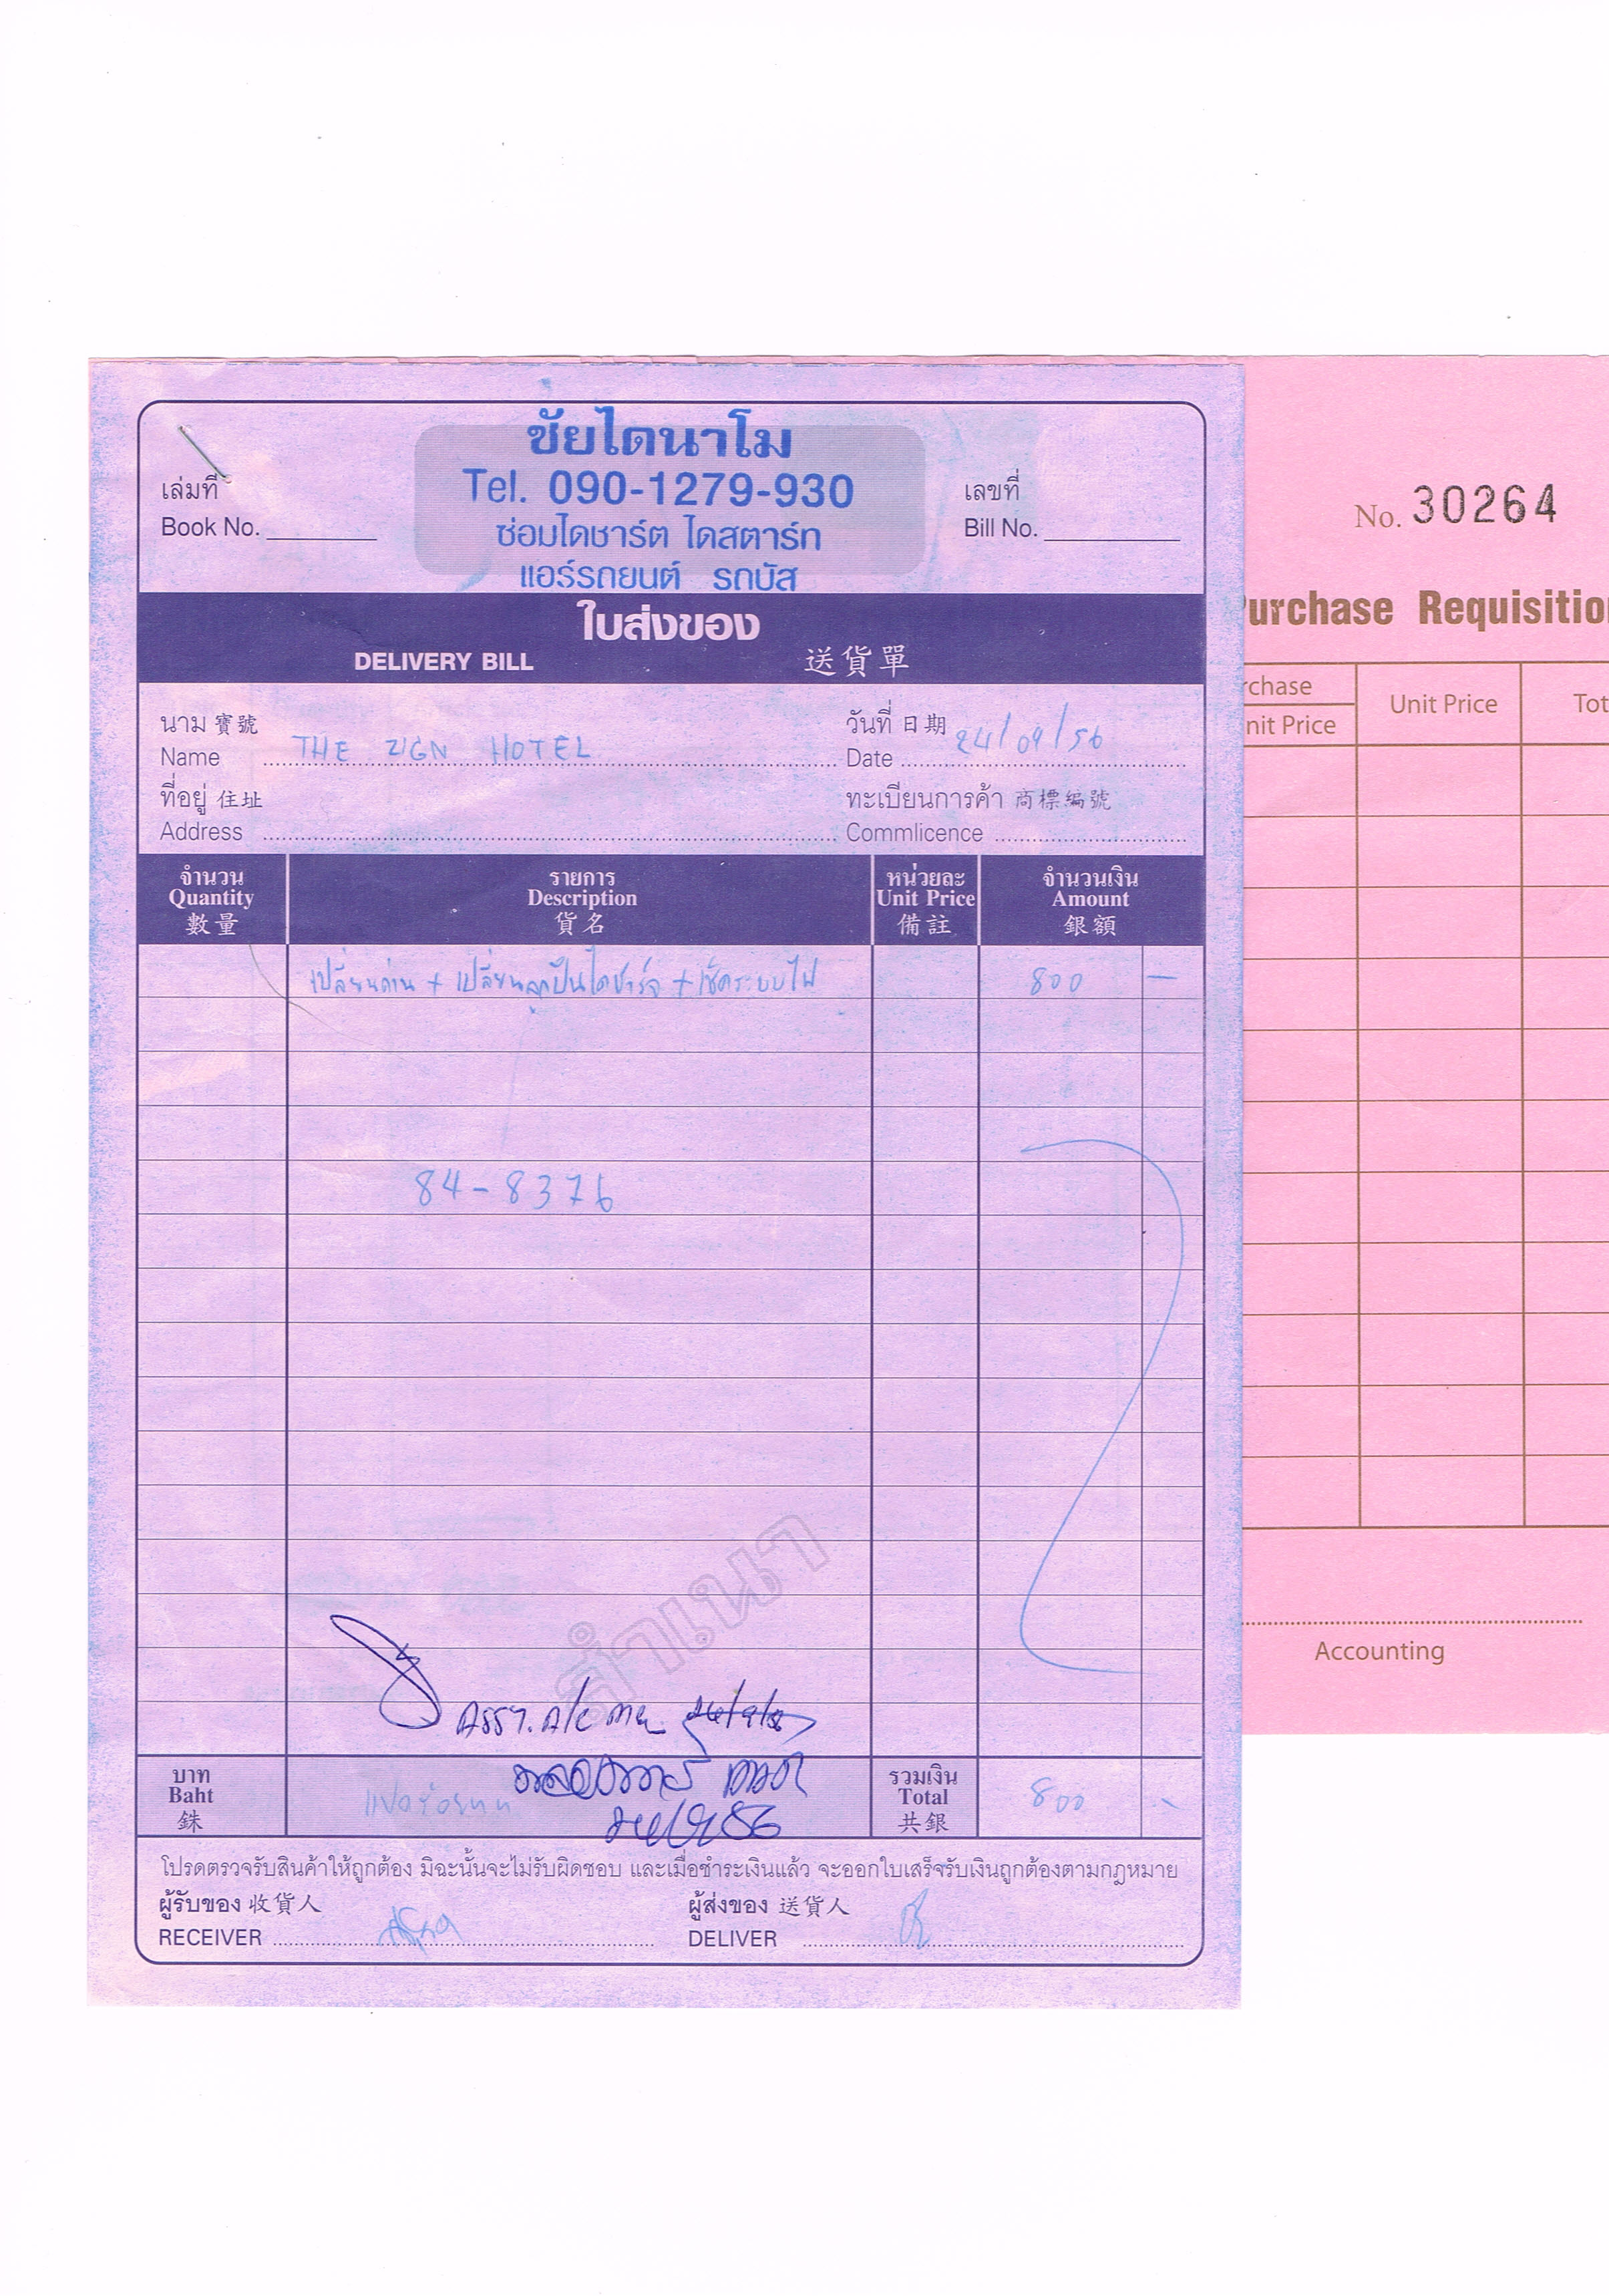 ชัยไดนาโม
Tel. 090-1279-930
ซ่อมไดชาร์ต ไดสตาร์ท
แอร์รถยนต์ รถบัส
เล่มที่
Book No.
เลขที่
Bill No.
ใบส่งของ
DELIVERY BILL 送貨單
นาม 寶號
Name THE ZIGN HOTEL
วันที่ 日期
Date 24/09/56
ที่อยู่ 住址
Address
ทะเบียนการค้า 商標編號
Commlicence
จำนวน รายการ หน่วยละ จำนวนเงิน
Quantity Description Unit Price Amount
數量 貨名 備註 銀額
เปลี่ยนถ่าน + เปลี่ยนลูกปืนไดชาร์จ + เช็คระบบไฟ 800 –
84-8376
สำเนา
ASST. A/C 26/9/56
บาท
Baht
銖
แปดร้อยบาท
รวมเงิน
Total
共銀
800 -
โปรดตรวจรับสินค้าให้ถูกต้อง มิฉะนั้นจะไม่รับผิดชอบ และเมื่อชำระเงินแล้ว จะออกใบเสร็จรับเงินถูกต้องตามกฎหมาย
ผู้รับของ 收貨人
RECEIVER
ผู้ส่งของ 送貨人
DELIVER
No. 30264
urchase Requisitio
rchase
nit Price
Unit Price
Tot
Accounting